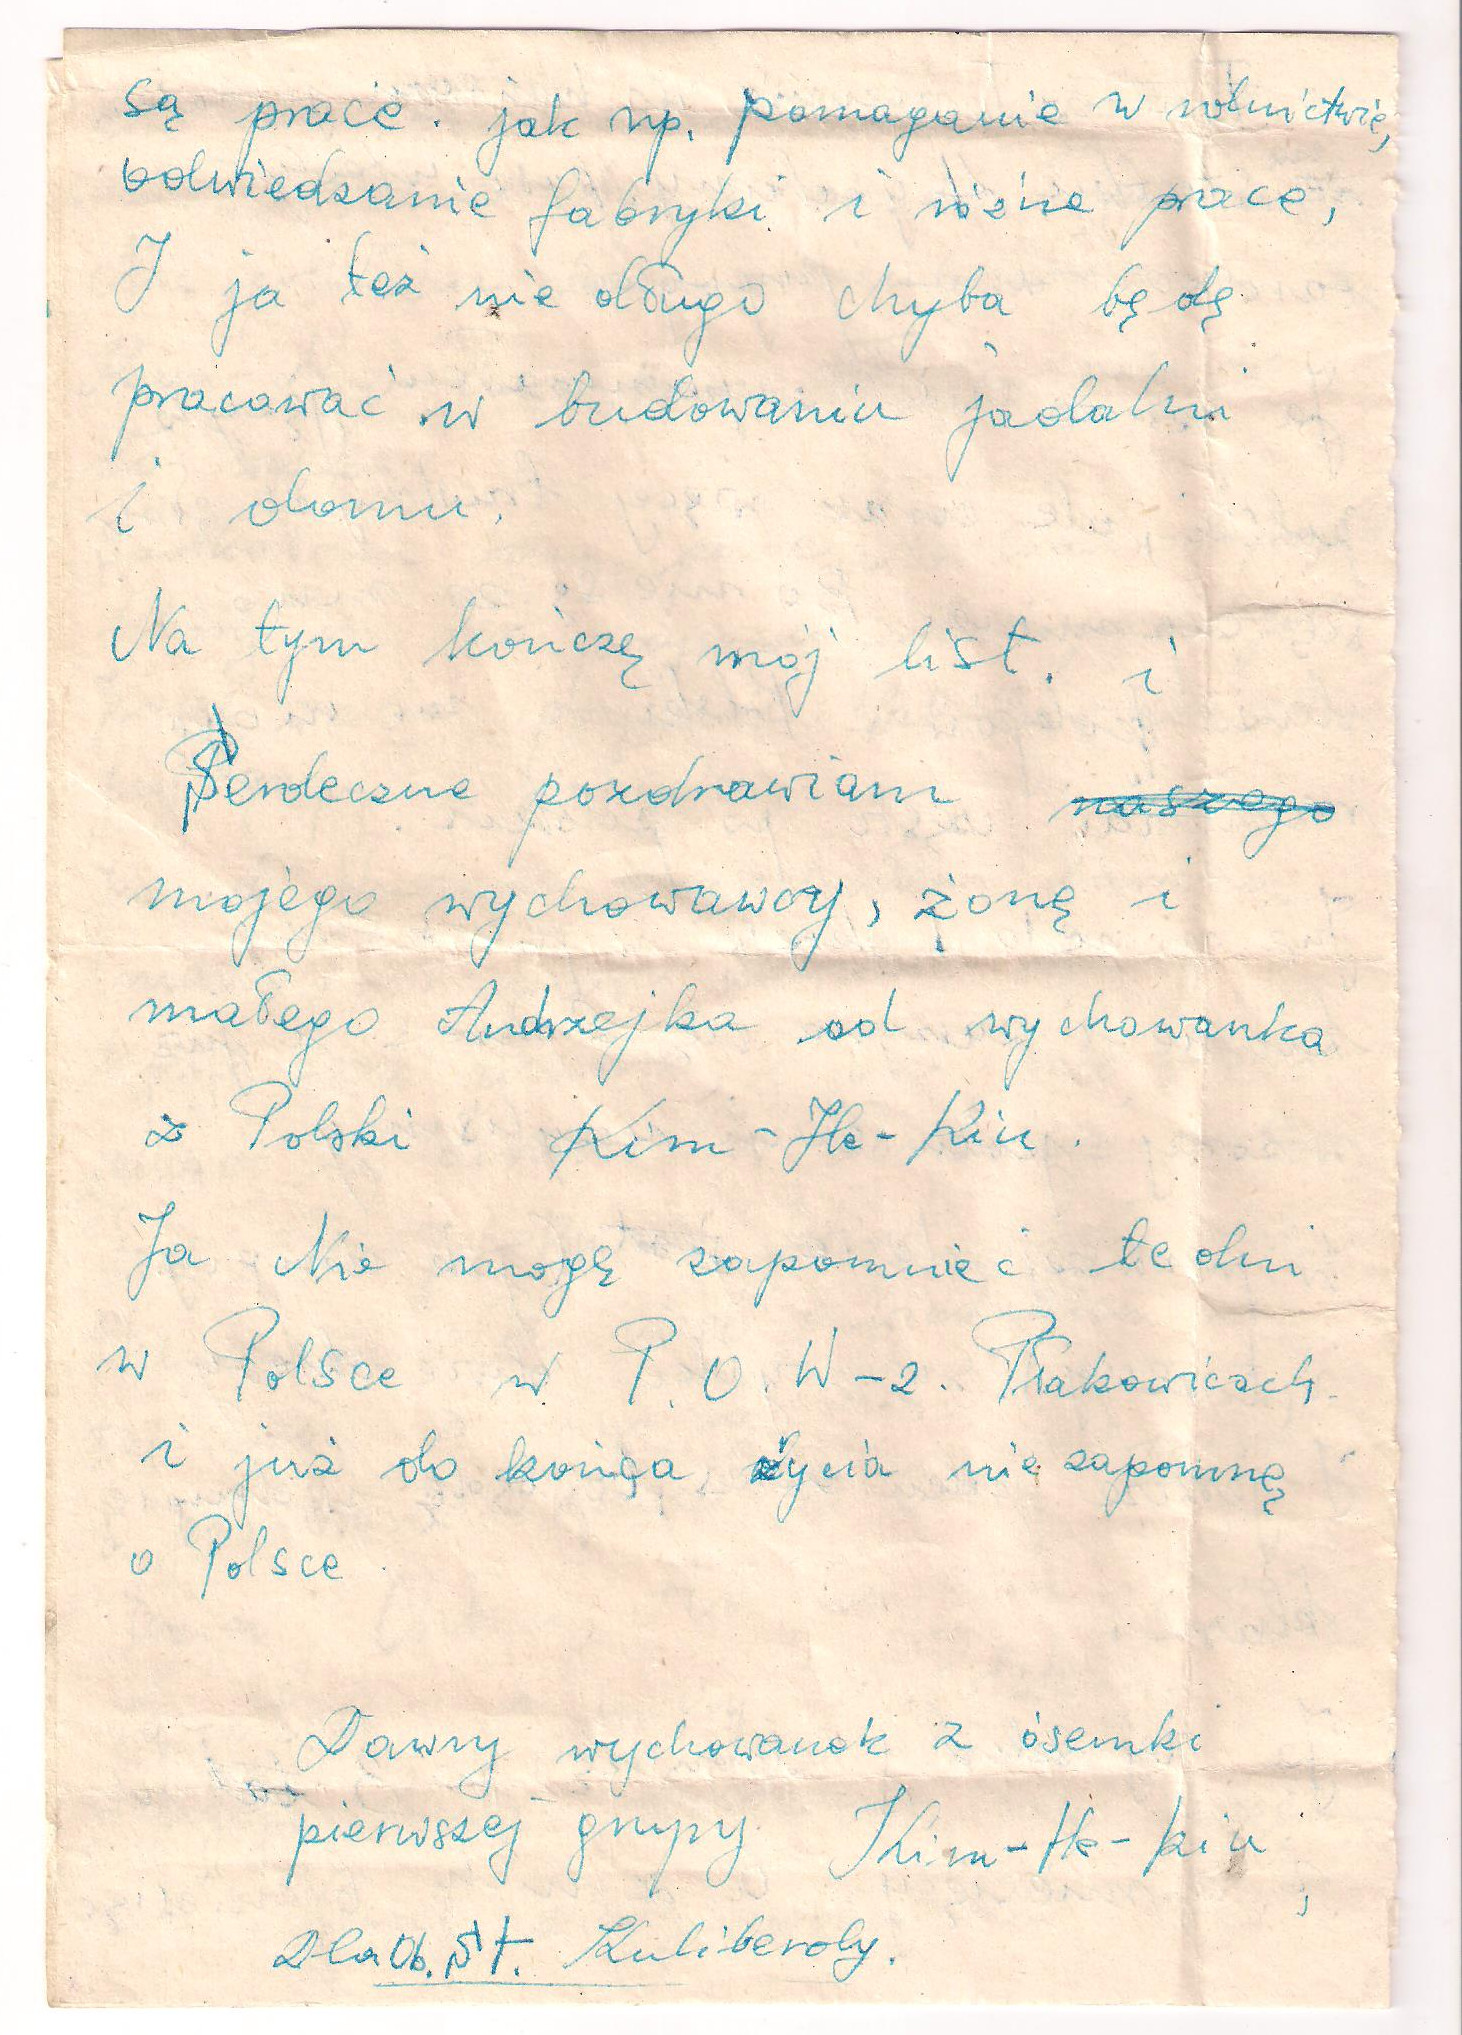 są pracie. jak np. pomaganie w rólnictwie,
odwiedzanie fabryki i różne prace,
I ja też nie długo chyba będę
pracować w budowaniu jadalni
i domu.
Na tym kończę mój list. i
Serdeczne pozdrawiam naszego
mojego wychowawcy, żonę i
małego Andrzejka od wychowanka
z Polski Kim-He-Kiu.
Ja Nie mogę zapomnieć te dni
w Polsce w P.O.W-2. Płakowicach
i już do końca życia nie zapomnę
o Polsce.
Dawny wychowanek z ósemki
pierwszej grupy Kim-He-kiu,
Dla Ob. St. Kuliberdy.